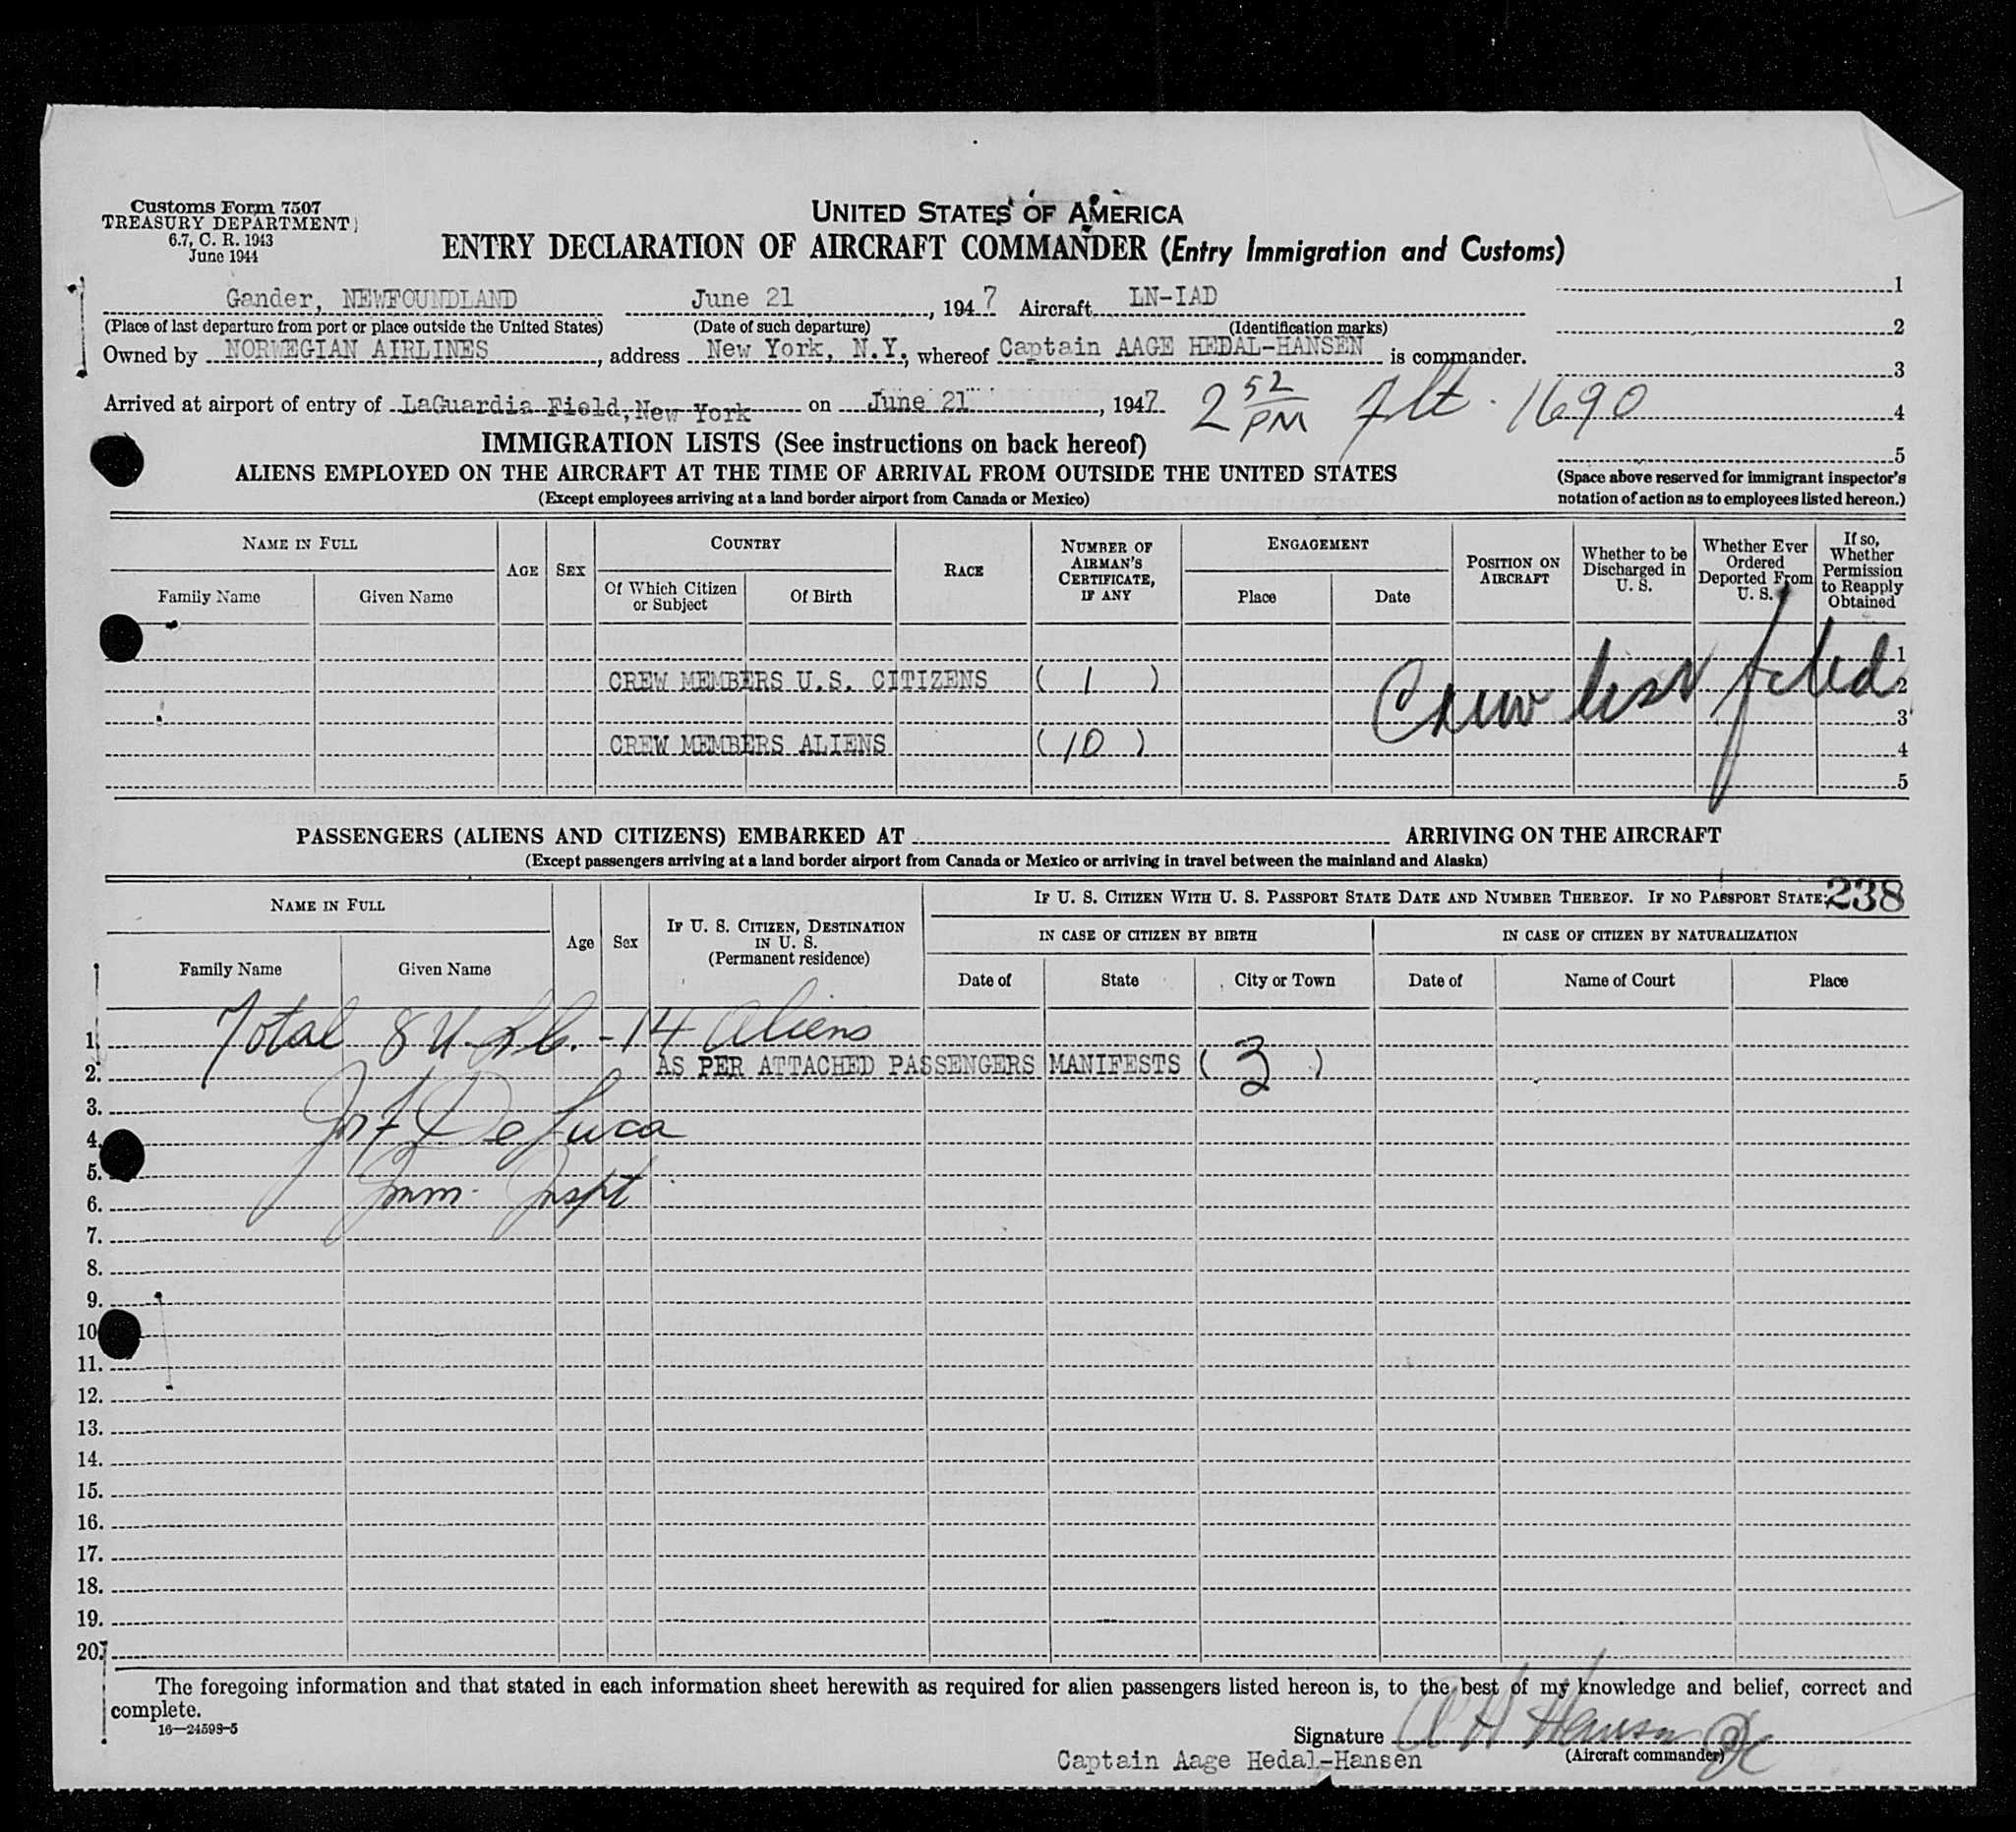 Customs Form 7507
TREASURY DEPARTMENT
6.7, C. R. 1943
June 1944
UNITED STATES OF AMERICA
ENTRY DECLARATION OF AIRCRAFT COMMANDER (Entry Immigration and Customs)
Gander, NEWFOUNDLAND June 21, 1947 Aircraft LN-IAD
(Place of last departure from port or place outside the United States) (Date of such departure) (Identification marks)
Owned by NORWEGIAN AIRLINES, address New York, N.Y., whereof Captain AAGE HEDAL-HANSEN is commander.
Arrived at airport of entry of LaGuardia Field, New York on June 21, 1947 2 52 PM Flt. 1690
1
2
3
4
5
(Space above reserved for immigrant inspector's
notation of action as to employees listed hereon.)
IMMIGRATION LISTS (See instructions on back hereof)
ALIENS EMPLOYED ON THE AIRCRAFT AT THE TIME OF ARRIVAL FROM OUTSIDE THE UNITED STATES
(Except employees arriving at a land border airport from Canada or Mexico)
NAME IN FULL
Family Name
Given Name
AGE
SEX
COUNTRY
Of Which Citizen or Subject
Of Birth
RACE
NUMBER OF AIRMAN'S CERTIFICATE, IF ANY
ENGAGEMENT
Place
Date
POSITION ON AIRCRAFT
Whether to be Discharged in U. S.
Whether Ever Ordered Deported From U. S.
If so, Whether Permission to Reapply Obtained
1
CREW MEMBERS U.S. CITIZENS ( 1 ) Crew list filed 2
3
CREW MEMBERS ALIENS ( 10 ) 4
5
PASSENGERS (ALIENS AND CITIZENS) EMBARKED AT ARRIVING ON THE AIRCRAFT
(Except passengers arriving at a land border airport from Canada or Mexico or arriving in travel between the mainland and Alaska)
NAME IN FULL
Family Name
Given Name
Age
Sex
IF U. S. CITIZEN, DESTINATION IN U. S.
(Permanent residence)
IF U. S. CITIZEN WITH U. S. PASSPORT STATE DATE AND NUMBER THEREOF. IF NO PASSPORT STATE: 238
IN CASE OF CITIZEN BY BIRTH
Date of
State
City or Town
IN CASE OF CITIZEN BY NATURALIZATION
Date of
Name of Court
Place
1. Total 8 U.S.C. - 14 Aliens
2. AS PER ATTACHED PASSENGERS MANIFESTS ( 3 )
3.
4. De Luca
5.
6. Imm. Inspt
7.
8.
9.
10
11.
12.
13.
14.
15.
16.
17.
18.
19.
20.
The foregoing information and that stated in each information sheet herewith as required for alien passengers listed hereon is, to the best of my knowledge and belief, correct and
complete.
16—24598-5
Signature A H Hansen
(Aircraft commander)
Captain Aage Hedal-Hansen